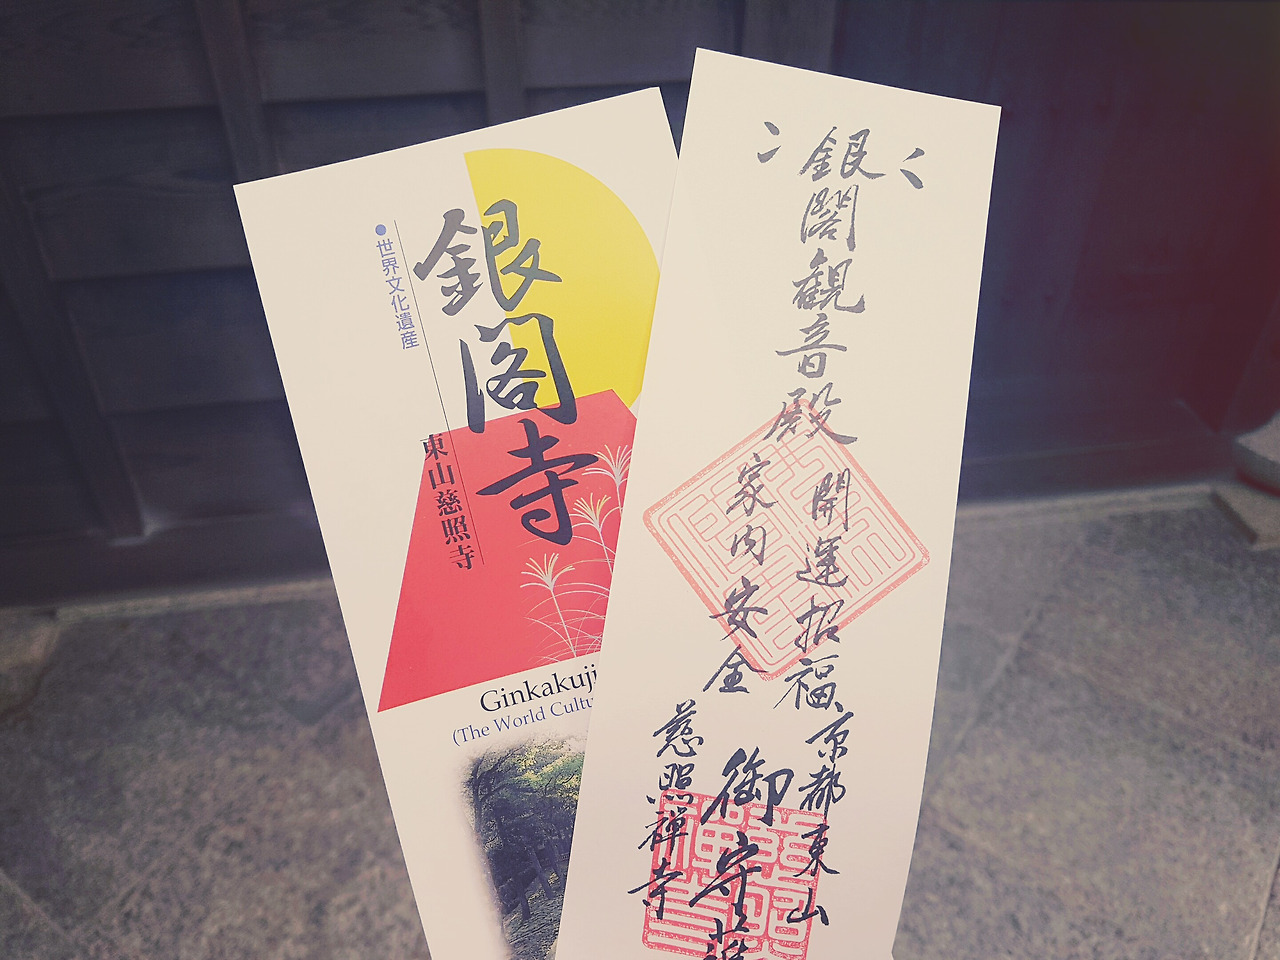 銀閣寺
世界文化遺産
東山慈照寺
Ginkakuji
(The World Cultu
銀閣観音殿
開運招福
家内安全
京都東山
御守護
慈照禅寺